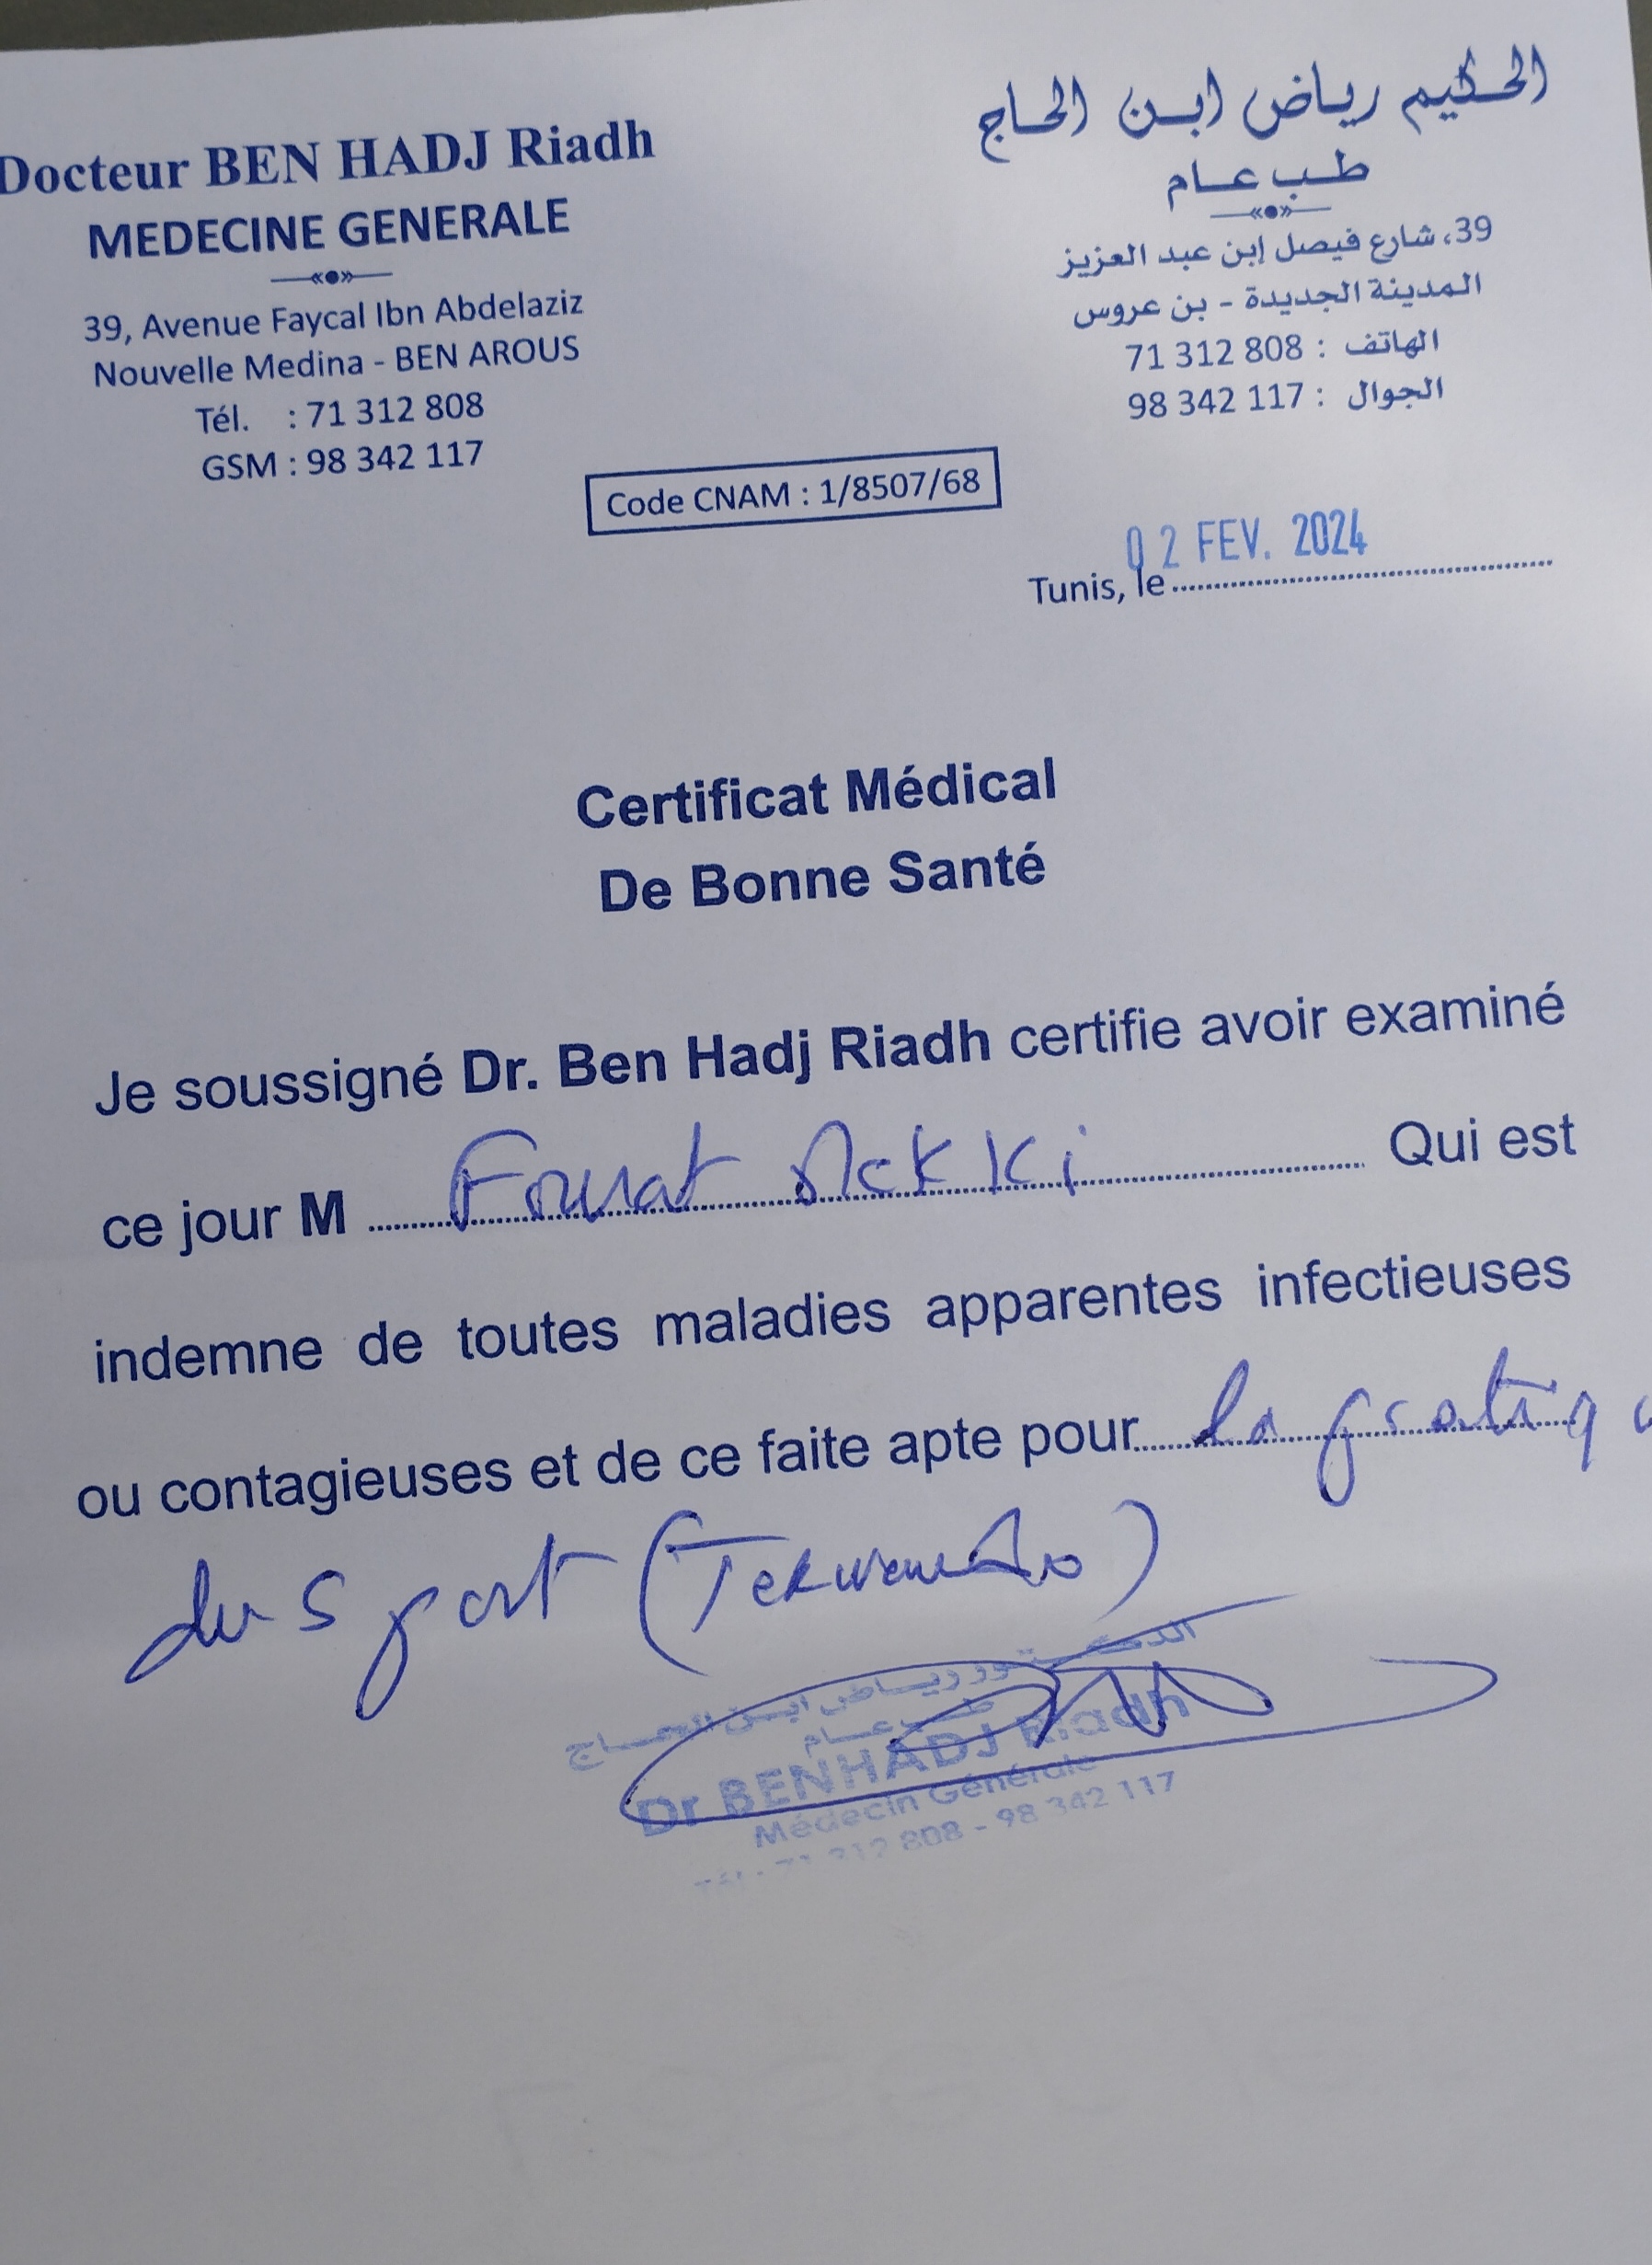 Docteur BEN HADJ Riadh
MEDECINE GENERALE
39, Avenue Faycal Ibn Abdelaziz
Nouvelle Medina - BEN AROUS
Tél. : 71 312 808
GSM : 98 342 117
الحكيم رياض ابن الحاج
طب عام
39، شارع فيصل إبن عبد العزيز
المدينة الجديدة - بن عروس
الهاتف : 71 312 808
الجوال : 98 342 117
Code CNAM : 1/8507/68
Tunis, le 02 FEV. 2024
Certificat Médical
De Bonne Santé
Je soussigné Dr. Ben Hadj Riadh certifie avoir examiné
ce jour M Qui est
indemne de toutes maladies apparentes infectieuses
ou contagieuses et de ce faite apte pour la pratiq
du sport
الدكتور رياض ابن الحاج
طب عام
Dr BENHADJ Riadh
Médecin Générale
Tél : 71 312 808 - 98 342 117